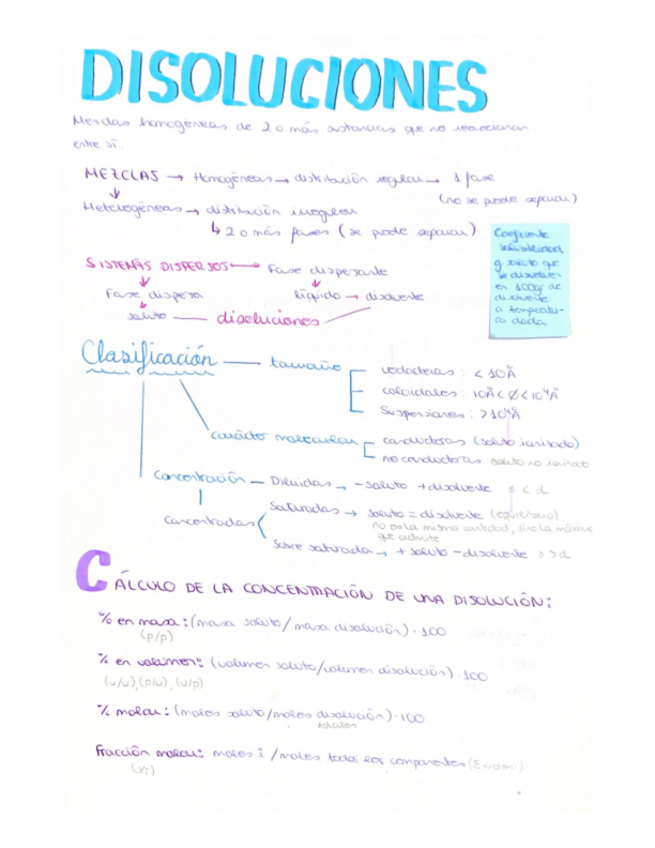 DISOLUCIONES
Mezclas homogéneas de 2 o más sustancias que no reaccionan
entre sí.
MEZCLAS → Homogéneas → distribución regular → 1 fase
(no se puede separar)
Heterogéneas → distribución irregular
↳ 2 o más fases (se puede separar)
Coeficiente
solubilidad
g soluto que
se disuelven
en 100g de
disolvente
a temperatu-
ra dada
SISTEMAS DISPERSOS → Fase dispersante
Fase dispersa
líquido → disolvente
soluto — disoluciones
Clasificación — tamaño
verdaderas : < 10Å
coloidales : 10Å < Ø < 10⁴Å
Suspensiones : > 10⁴Å
carácter molecular
conductoras (soluto ionizado)
no conductoras soluto no ionizado
Concentración — Diluidas → - soluto + disolvente s < d
Concentradas
Saturadas → soluto = disolvente (equilibrio)
no es la misma cantidad, sino la máxima
que admite
Sobresaturada → + soluto - disolvente s > d
CÁLCULO DE LA CONCENTRACIÓN DE UNA DISOLUCIÓN:
% en masa : (masa soluto / masa disolución) · 100
(p/p)
% en volumen: (volumen soluto/volumen disolución) · 100
(v/v), (p/v), (v/p)
% molar : (moles soluto/moles disolución) · 100
totales
Fracción molar: moles i / moles todos los componentes
(xi)